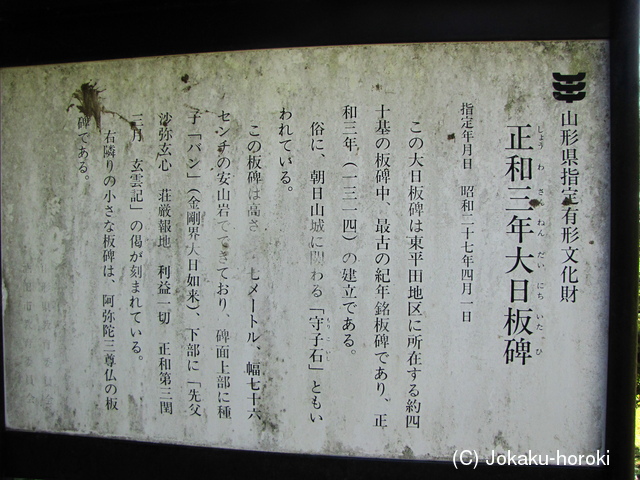 山形県指定有形文化財
しょうわさんねんだいにちいたひ
正和三年大日板碑
指定年月日 昭和二十七年四月一日
この大日板碑は東平田地区に所在する約四
十基の板碑中、最古の紀年銘板碑であり、正
和三年(一三一四)の建立である。
俗に、朝日山城に関わる「守子石」ともい
われている。
この板碑は高さ 七メートル、幅七十六
センチの安山岩でできており、碑面上部に種
子「バン」(金剛界大日如来)、下部に「先父
沙弥玄心 荘厳報地 利益一切 正和第三閏
三月 玄雲記」の偈が刻まれている。
右隣りの小さな板碑は、阿弥陀三尊仏の板
碑である。
(C) Jokaku-horoki